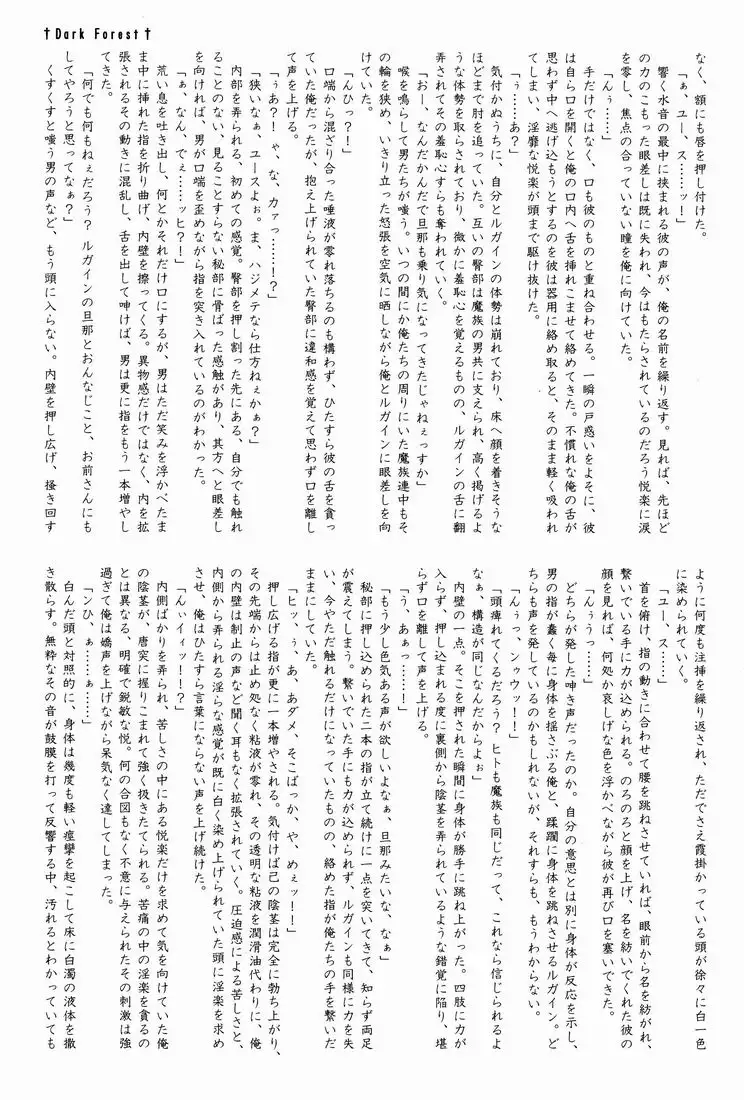 †Dark Forest†
なく、額にも唇を押し付けた。
「ぁ、ユー、ス……ッ！」
響く水音の最中に挟まれる彼の声が、俺の名前を繰り返す。見れば、先ほど
の力のこもった眼差しは既に失われ、今はもたらされているのだろう悦楽に涙
を零し、焦点の合っていない瞳を俺に向けていた。
「んぅ……」
手だけではなく、口も彼のものと重ね合わせる。一瞬の戸惑いをよそに、彼
は自ら口を開くと俺の口内へ舌を挿れこませて絡めてきた。不慣れな俺の舌が
思わず中へ逃げ込もうとするのを彼は器用に絡め取ると、そのまま軽く吸われ
てしまい、淫靡な悦楽が頭まで駆け抜けた。
「ぅ……あ？」
気付かぬうちに、自分とルガインの体勢は崩れており、床へ顔を着きそうな
ほどまで肘を追っていた。互いの臀部は魔族の男共に支えられ、高く掲げるよ
うな体勢を取らされており、微かに羞恥心を覚えるものの、ルガインの舌に翻
弄されてその羞恥心すらも奪われていく。
「おー、なんだかんだで旦那も乗り気になってきたじゃねぇっすか」
喉を鳴らして男たちが嗤う。いつの間にか俺たちの周りにいた魔族連中もそ
の輪を狭め、いきり立った怒張を空気に晒しながら俺とルガインに眼差しを向
けていた。
「んひっ？！」
口端から混ざり合った唾液が零れ落ちるのも構わず、ひたすら彼の舌を貪っ
ていた俺だったが、抱え上げられていた臀部に違和感を覚えて思わず口を離し
て声を上げる。
「ぅあ？！ ゃ、な、カァっ……！？」
「狭いなぁ、ユースよぉ。ま、ハジメテなら仕方ねぇかぁ？」
内部を弄られる、初めての感覚。臀部を押し割った先にある、自分でも触れ
ることのない、見ることすらない秘部に骨ばった感触があり、其方へと眼差し
を向ければ、男が口端を歪めながら指を突き入れているのがわかった。
「ぁ、なん、でぇ……ッヒ？！」
荒い息を吐き出し、何とかそれだけ口にするが、男はただ笑みを浮かべたま
ま中に挿れた指を折り曲げ、内壁を擦ってくる。異物感だけではなく、内を拡
張されるその動きに混乱し、舌を出して呻けば、男は更に指をもう一本増やし
「何でも何もねぇだろう？ ルガインの旦那とおんなじこと、お前さんにも
してやろうと思ってなぁ？」
くすくすと嗤う男の声など、もう頭に入らない。内壁を押し広げ、掻き回す
ように何度も注挿を繰り返され、ただでさえ霞掛かっている頭が徐々に白一色
に染められていく。
「ユー、ス……」
首を俯け、指の動きに合わせて腰を跳ねさせていれば、眼前から名を紡がれ、
繋いでいる手に力が込められる。のろのろと顔を上げ、名を紡いでくれた彼の
顔を見れば、何処か哀しげな色を浮かべながら彼が再び口を塞いできた。
「んぅうっ……」
どちらが発した呻き声だったのか。自分の意思とは別に身体が反応を示し、
男の指が蠢く毎に身体を揺さぶる俺と、蹂躙に身体を跳ねさせるルガイン。ど
ちらも声を発しているのかもしれないが、それすらも、もうわからない。
「んぅっ、ンゥウッ！！」
「頭痺れてくるだろう？ ヒトも魔族も同じだって、これなら信じられるよ
なぁ、構造が同じなんだからよぉ」
内壁の一点。そこを押された瞬間に身体が勝手に跳ね上がった。四肢に力が
入らず、押し込まれる度に裏側から陰茎を弄られているような錯覚に陥り、堪
らず口を離して声を上げる。
「う、あぁっ……！」
「もう少し色気ある声が欲しいよなぁ、旦那みたいな、なぁ」
秘部に押し込められた二本の指が立て続けに一点を突いてきて、知らず両足
が震えてしまう。繋いでいた手にも力が込められず、ルガインも同様に力を失
い、今やただ触れるだけになっていたものの、絡めた指が俺たちの手を繋いだ
ままにしていた。
「ヒッ、ぅ、あ、あダメ、そこばっか、や、めぇッ！！」
押し広げる指が更に一本増やされる。気付けば己の陰茎は完全に勃ち上がり、
その先端からは止め処なく粘液が零れ、その透明な粘液を潤滑油代わりに、俺
の内壁は制止の声など聞く耳もなく拡張されていく。圧迫感による苦しさと、
内側から弄られる淫らな感覚が既に白く染め上げられていた頭に淫楽を求め
させ、俺はひたすら言葉にならない声を上げ続けた。
「んぃイィッ！！？」
内側ばかりを弄られ、苦しさの中にある悦楽だけを求めて気を向けていた俺
の陰茎が、唐突に握りこまれて強く扱きたてられる。苦痛の中の淫楽を貪るの
とは異なる、明確で鋭敏な悦。何の合図もなく不意に与えられたその刺激は強
過ぎて俺は嬌声を上げながら呆気なく達してしまった。
「ンひ、ぁ……ぁ……」
白んだ頭と対照的に、身体は幾度も軽い痙攣を起こして床に白濁の液体を撒
き散らす。無粋なその音が鼓膜を打って反響する中、汚れるとわかっていても